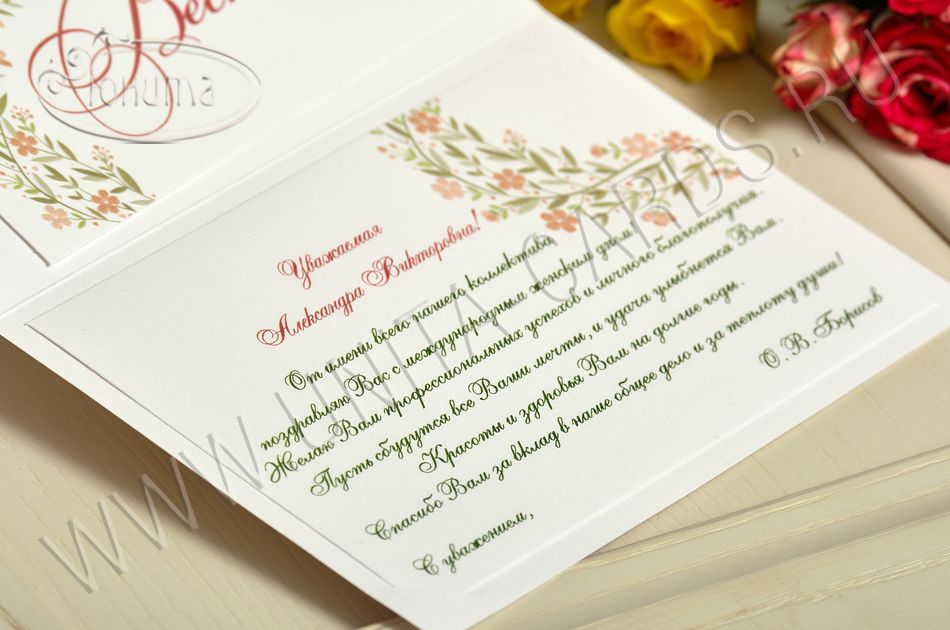 Вес
Юнита
Уважаемая
Александра Викторовна!
От имени всего нашего коллектива,
поздравляю Вас с международным женским днем!
Желаю Вам профессиональных успехов и личного благополучия.
Пусть сбудутся все Ваши мечты, и удача улыбнется Вам.
Красоты и здоровья Вам на долгие годы.
Спасибо Вам за вклад в наше общее дело и за теплоту души!
С уважением,
О. В. Борисов
WWW.UNITA-CARDS.RU